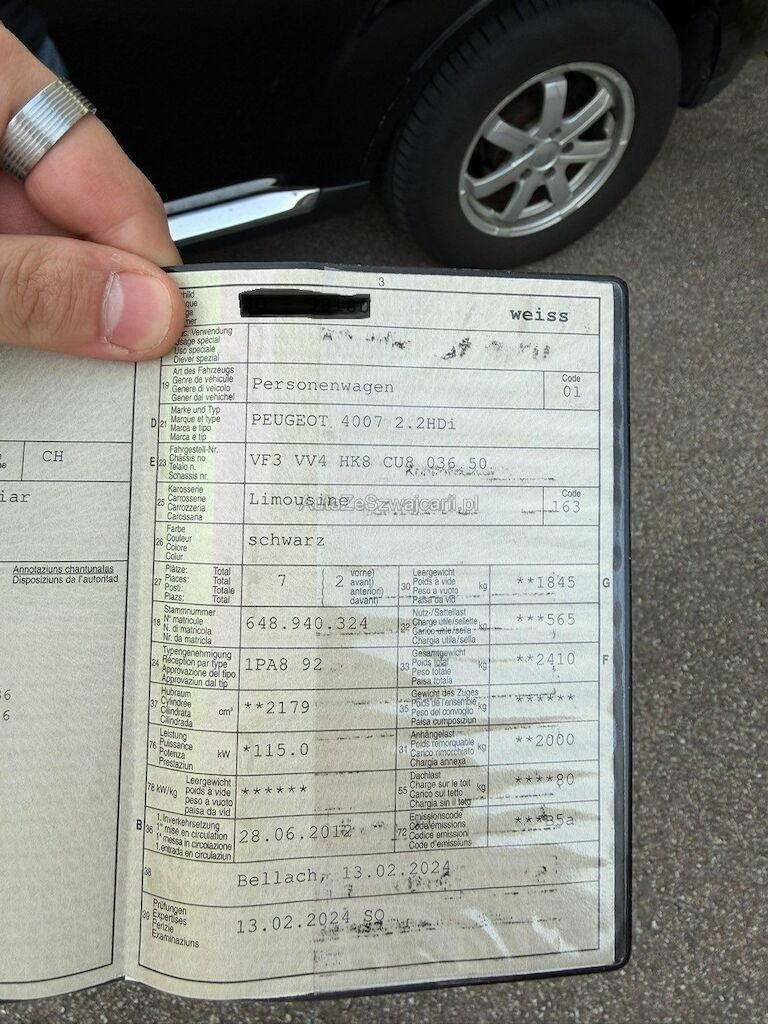 3
weiss
Verwendung
Usage spécial
Uso speciale
Diever spezial
19 Art des Fahrzeugs
Genre de véhicule
Genere di veicolo
Gener dal vehichel
Personenwagen
Code
01
D 21 Marke und Typ
Marque et type
Marca e tipo
Marca e tip
PEUGEOT 4007 2.2HDi
E 23 Fahrgestell-Nr.
Châssis no
Telaio n.
Schassis nr.
VF3 VV4 HK8 CU8 036 50
25 Karosserie
Carrosserie
Carrozzeria
Carossaria
Limousine
Code
163
AutoZeSzwajcarii.pl
26 Farbe
Couleur
Colore
Colur
schwarz
27 Plätze: Total
Places: Total
Posti: Totale
Plazs: Total
7
( 2 vorne)
avant)
anteriori)
davant)
30 Leergewicht
Poids à vide
Peso a vuoto
Paisa da vid
kg
**1845
G
18 Stammnummer
N° matricule
N. di matricola
Nr. da matricla
648.940.324
32 Nutz-/Sattellast
Charge utile/sellette
Carico utile/sella
Chargia utila/sella
kg
***565
24 Typengenehmigung
Réception par type
Approvazione del tipo
Approvaziun dal tip
1PA8 92
33 Gesamtgewicht
Poids total
Peso totale
Paisa totala
kg
**2410
F
37 Hubraum
Cylindrée
Cilindrata
Cilindrada
cm³
**2179
35 Gewicht des Zuges
Poids de l'ensemble
Peso del convoglio
Paisa cumposiziun
kg
******
76 Leistung
Puissance
Potenza
Prestaziun
kW
*115.0
31 Anhängelast
Poids remorquable
Carico rimorchiato
Chargia annexa
kg
**2000
78 kW/kg Leergewicht
poids à vide
peso a vuoto
paisa da vid
******
55 Dachlast
Charge sur le toit
Carico sul tetto
Chargia sin il tetg
kg
****80
B 36 1. Inverkehrsetzung
1re mise en circulation
1a messa in circolazione
1. entrada en circulaziun
28.06.2012
72 Emissionscode
Code émissions
Codice emissioni
Code d'emissiuns
***B5a
38
Bellach, 13.02.2024
39 Prüfungen
Expertises
Perizie
Examinaziuns
13.02.2024 SO
CH
iar
Annotaziuns chantunalas
Disposiziuns da l'autoritad
6